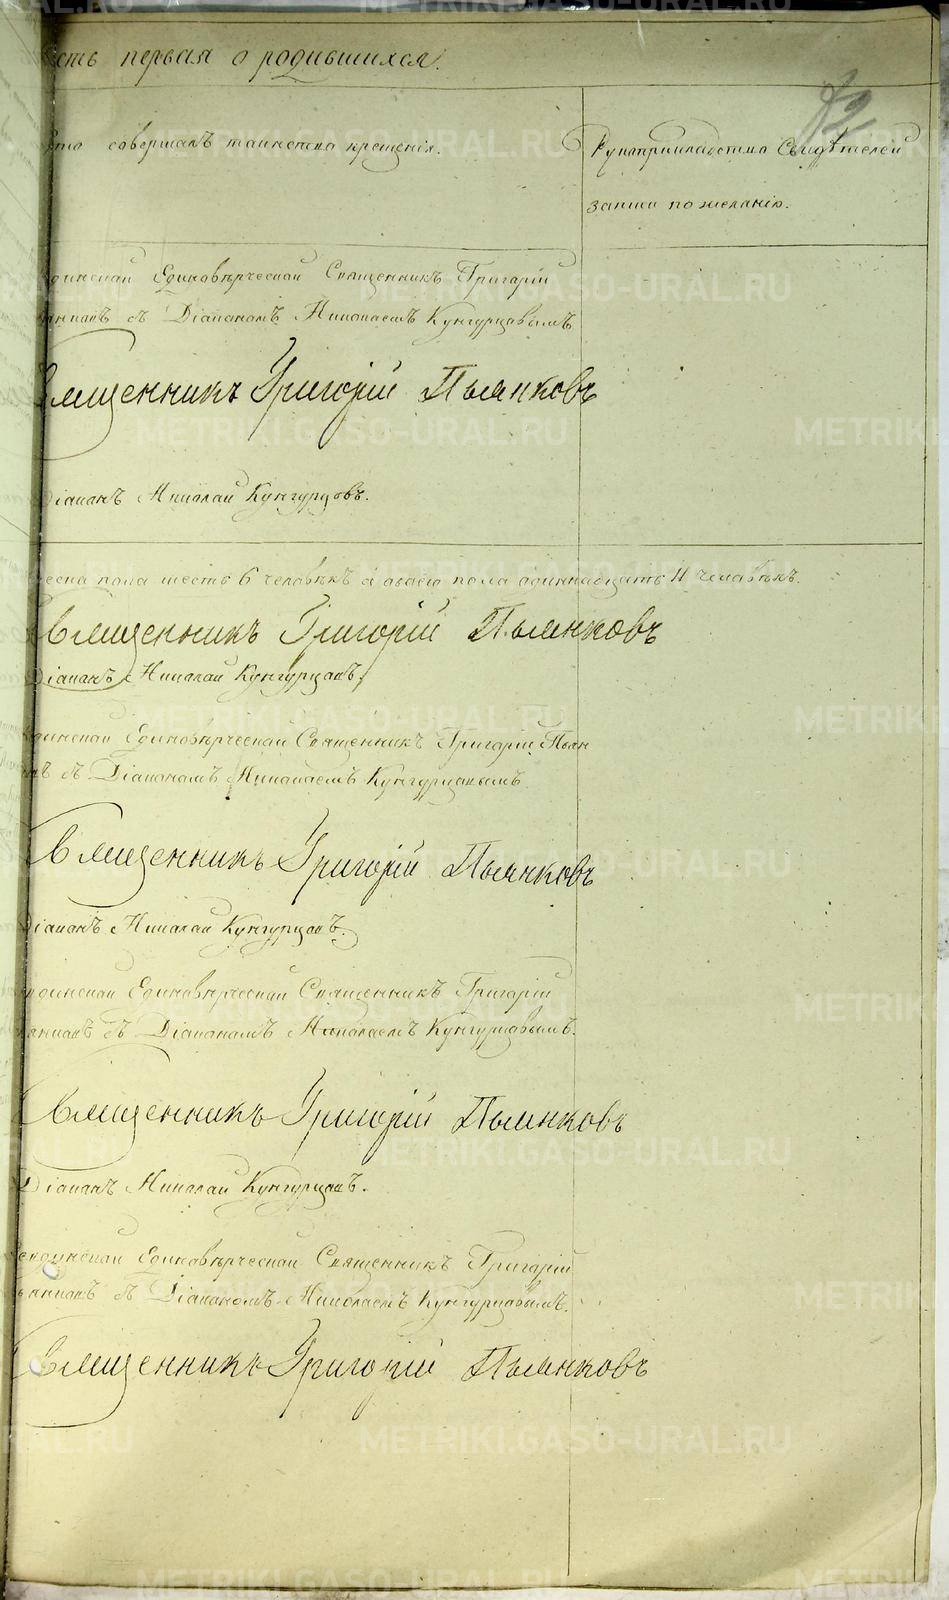 сть первая о родившихся.
82
кто совершалъ таинство крещенія.
Рукоприкладство Свидѣтелей
записи по желанію.
Единовѣрческой Священникъ Григорій
съ Діакономъ Николаемъ Кунгурцовымъ
Священникъ Григорій Пьянковъ
Діаконъ Николай Кунгурцовъ.
пола шесть 6 человѣкъ а обоего пола одиннадцать 11 человѣкъ.
Священникъ Григорій Пьянковъ
Діаконъ Николай Кунгурцовъ.
Единовѣрческой Священникъ Григорій Пьян
съ Діакономъ Николаемъ Кунгурцовымъ
Священникъ Григорій Пьянковъ
Діаконъ Николай Кунгурцовъ.
Единовѣрческой Священникъ Григорій
съ Діакономъ Николаемъ Кунгурцовымъ.
Священникъ Григорій Пьянковъ
Діаконъ Николай Кунгурцовъ.
Единовѣрческой Священникъ Григорій
съ Діакономъ Николаемъ Кунгурцовымъ.
Священникъ Григорій Пьянковъ
METRIKI.GASO-URAL.RU